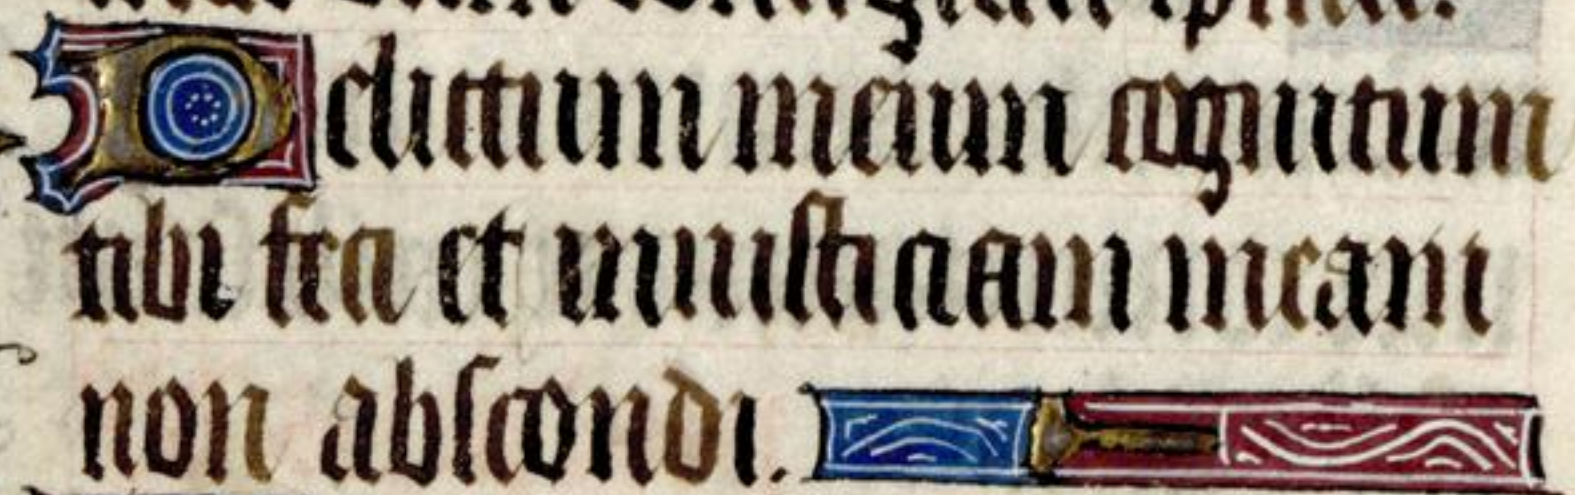 Delictum meum cognitum
tibi feci et iniusticiam meam
non abscondi.